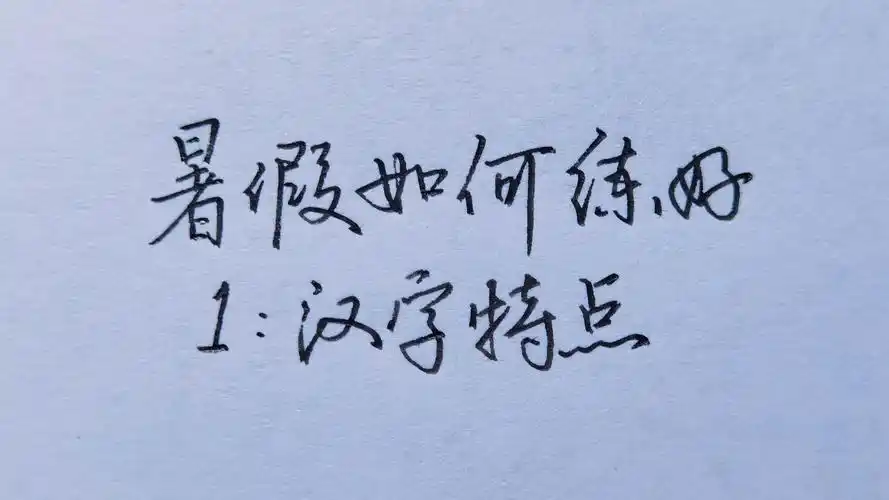 暑假如何练好
1:汉字特点